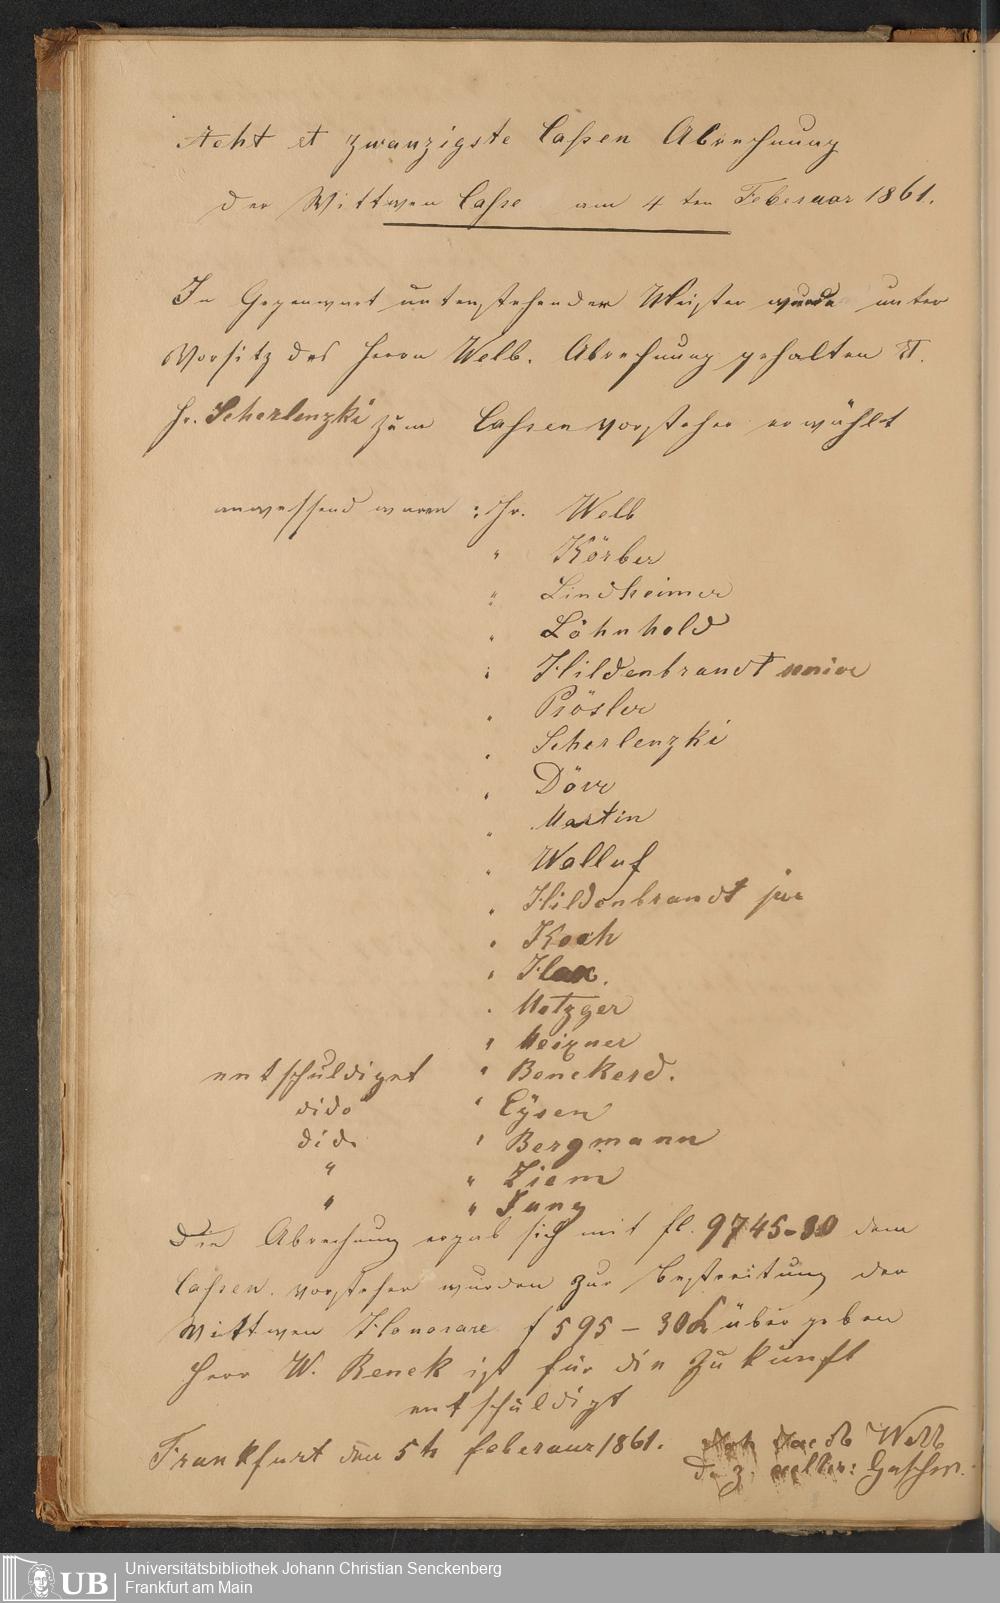 Acht et zwanzigste Caßen Abrechnung
der Wittwen Caße am 4 ten Feberuar 1861.
In Gegenwart untenstehender Meister wurde unter
Vorsitz des Herrn Welb. Abrechnung gehalten et.
Hr. Scherlenzki zum Caßen vorsteher erwählt
anwessend waren : Hr. Welb
" Körber
" Lindheimer
" Löhnhold
" Hildenbrandt senior
" Prösler
" Scherlenzki
" Dörr
" Martin
" Walluf
" Hildenbrandt jur
" Koch
" Flax.
" Metzger
" Meixner
entschuldiget " Benckerd.
dido " Eÿsen
dido " Bergmann
" " Ziem
" " Jung
Die Abrechnung ergab sich mit fl. 9745-30 dem
Caßen. vorsteher wurden zur Bestreitung der
Wittwen Honorare f 595 - 30 k übergeben
Herr W. Benek ist für die Zukunft
entschuldigt
Frankfurt den 5t feberuar 1861. Joh Jacob Welb
d. z. aelter: Geschw.
Universitätsbibliothek Johann Christian Senckenberg
Frankfurt am Main
UB